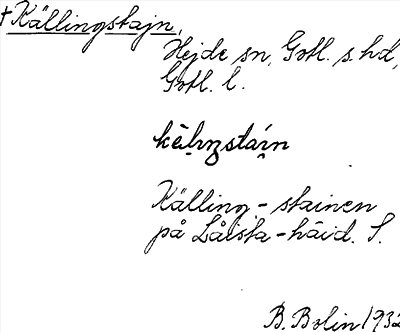 †Källingstajn,
Hejde sn, Gotl. s. hd,
Gotl. l.
Källing-stainen
på Låista-häid. S.
B. Bolin 1932